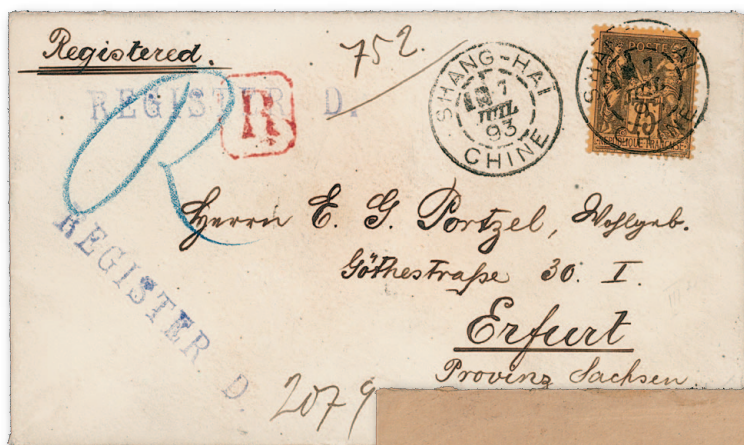 Registered.
752.
REGISTER D.
R
R
SHANG-HAÏ
7
JUIL
93
CHINE
POSTE
75
REPUBLIQUE FRANCAISE
SHANG-HAÏ
7
CHINE
Herrn E. G. Portzel, Wohlgeb.
Göthestraße 30. I.
Erfurt
Provinz Sachsen
REGISTER. D.
2079